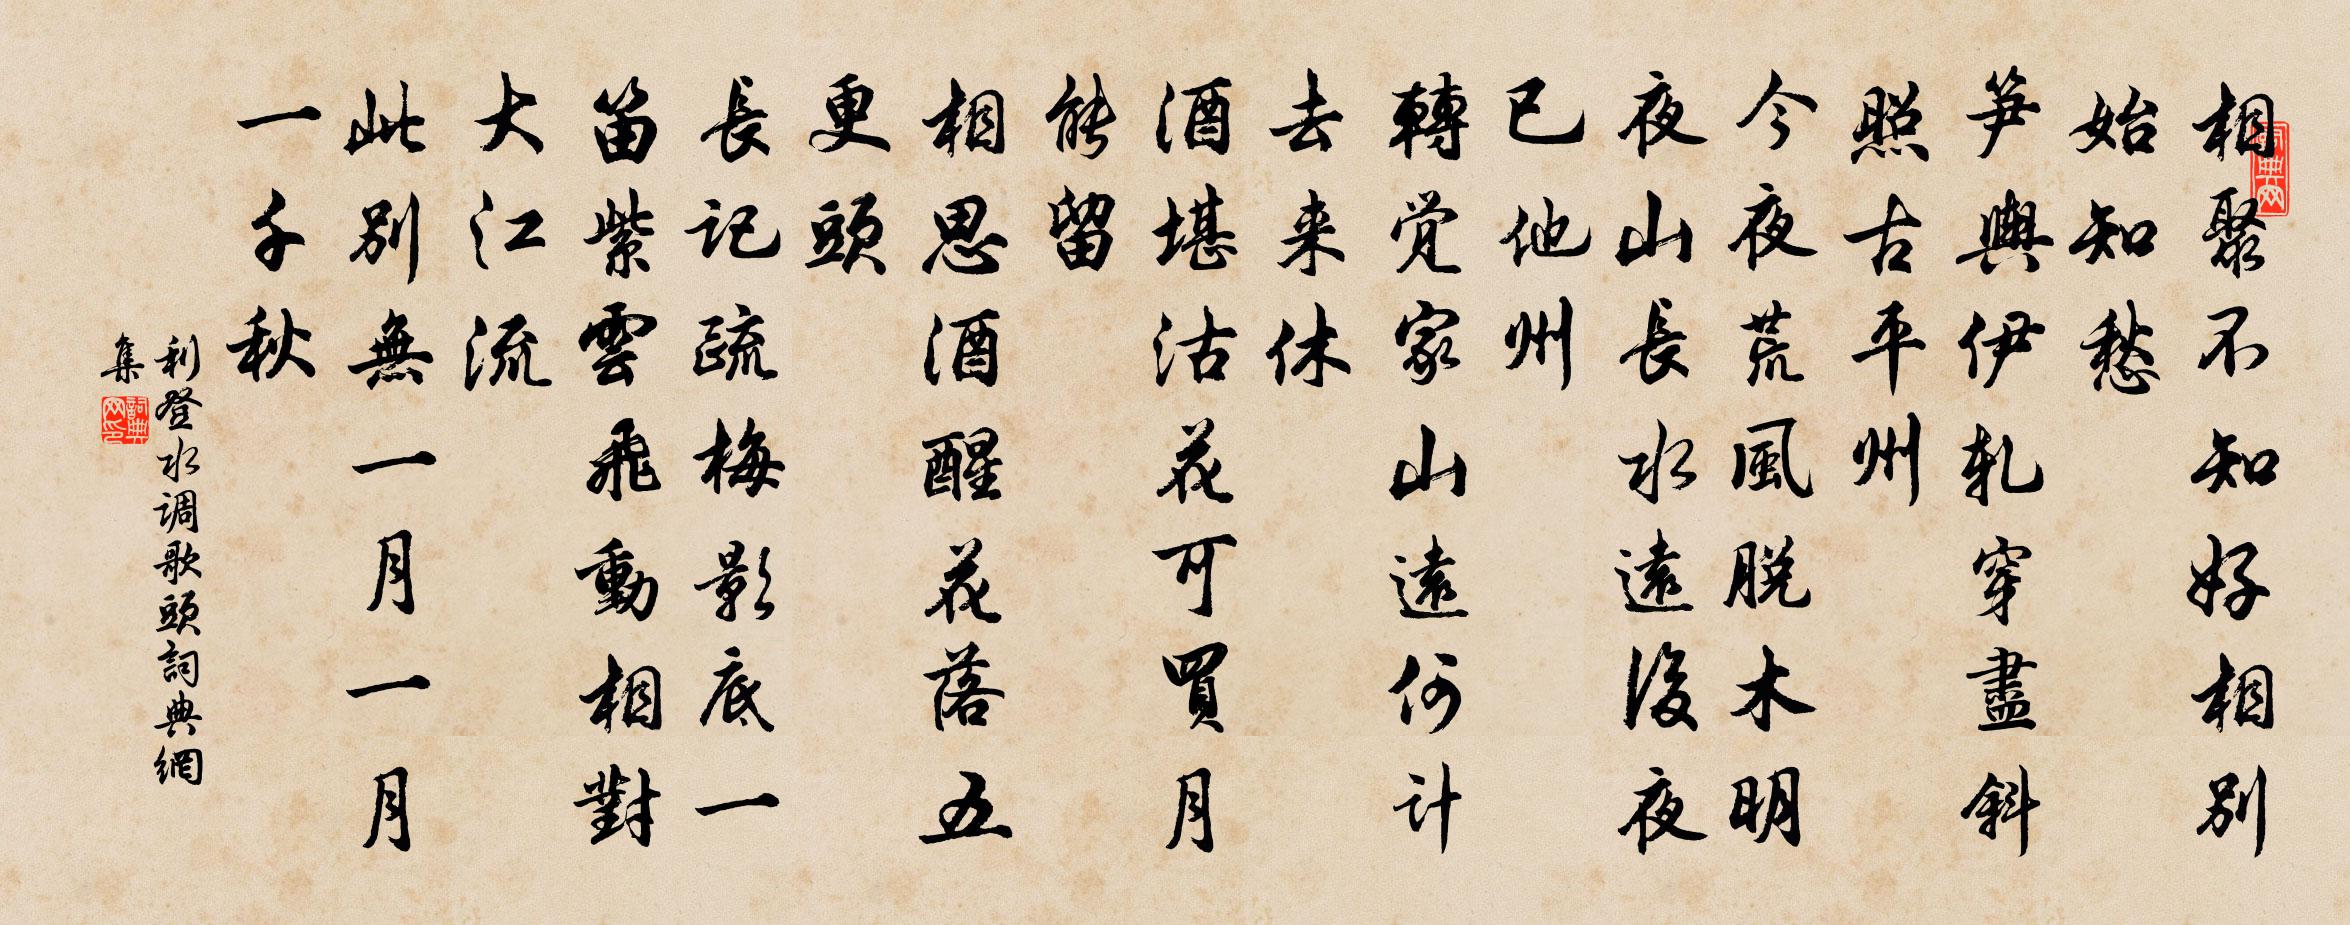 相聚不知好相别
始知愁
笋輿伊軋穿盡斜
照古平州
今夜荒風脱木明
夜山長水遠後夜
已他州
轉覺家山遠何计
去来休
酒堪沽花可買月
能留
相思酒醒花落五
更頭
長记疏梅影底一
笛紫雲飛動相對
大江流
此别無一月一月
一千秋
利登水调歌頭詞典網
集
詞典网
詞典网印